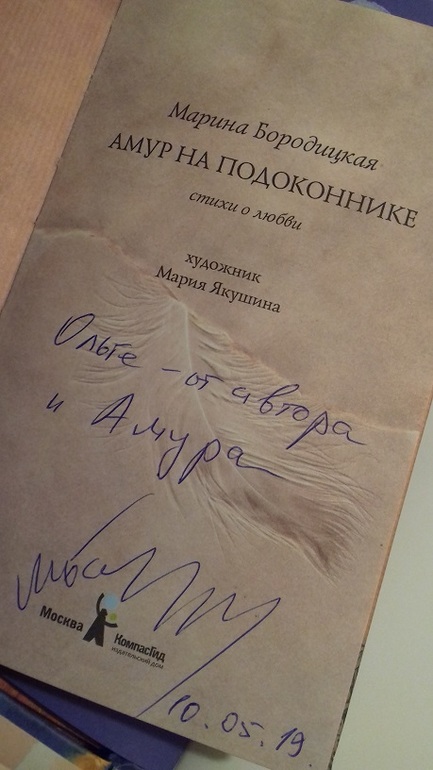 Марина Бородицкая
АМУР НА ПОДОКОННИКЕ
стихи о любви
художник
Мария Якушина
Ольге – от автора
и Амура
Москва
КомпасГид
издательский дом
10.05.19.